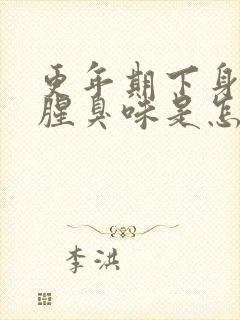 更年期下身
腥臭味是怎
李洪